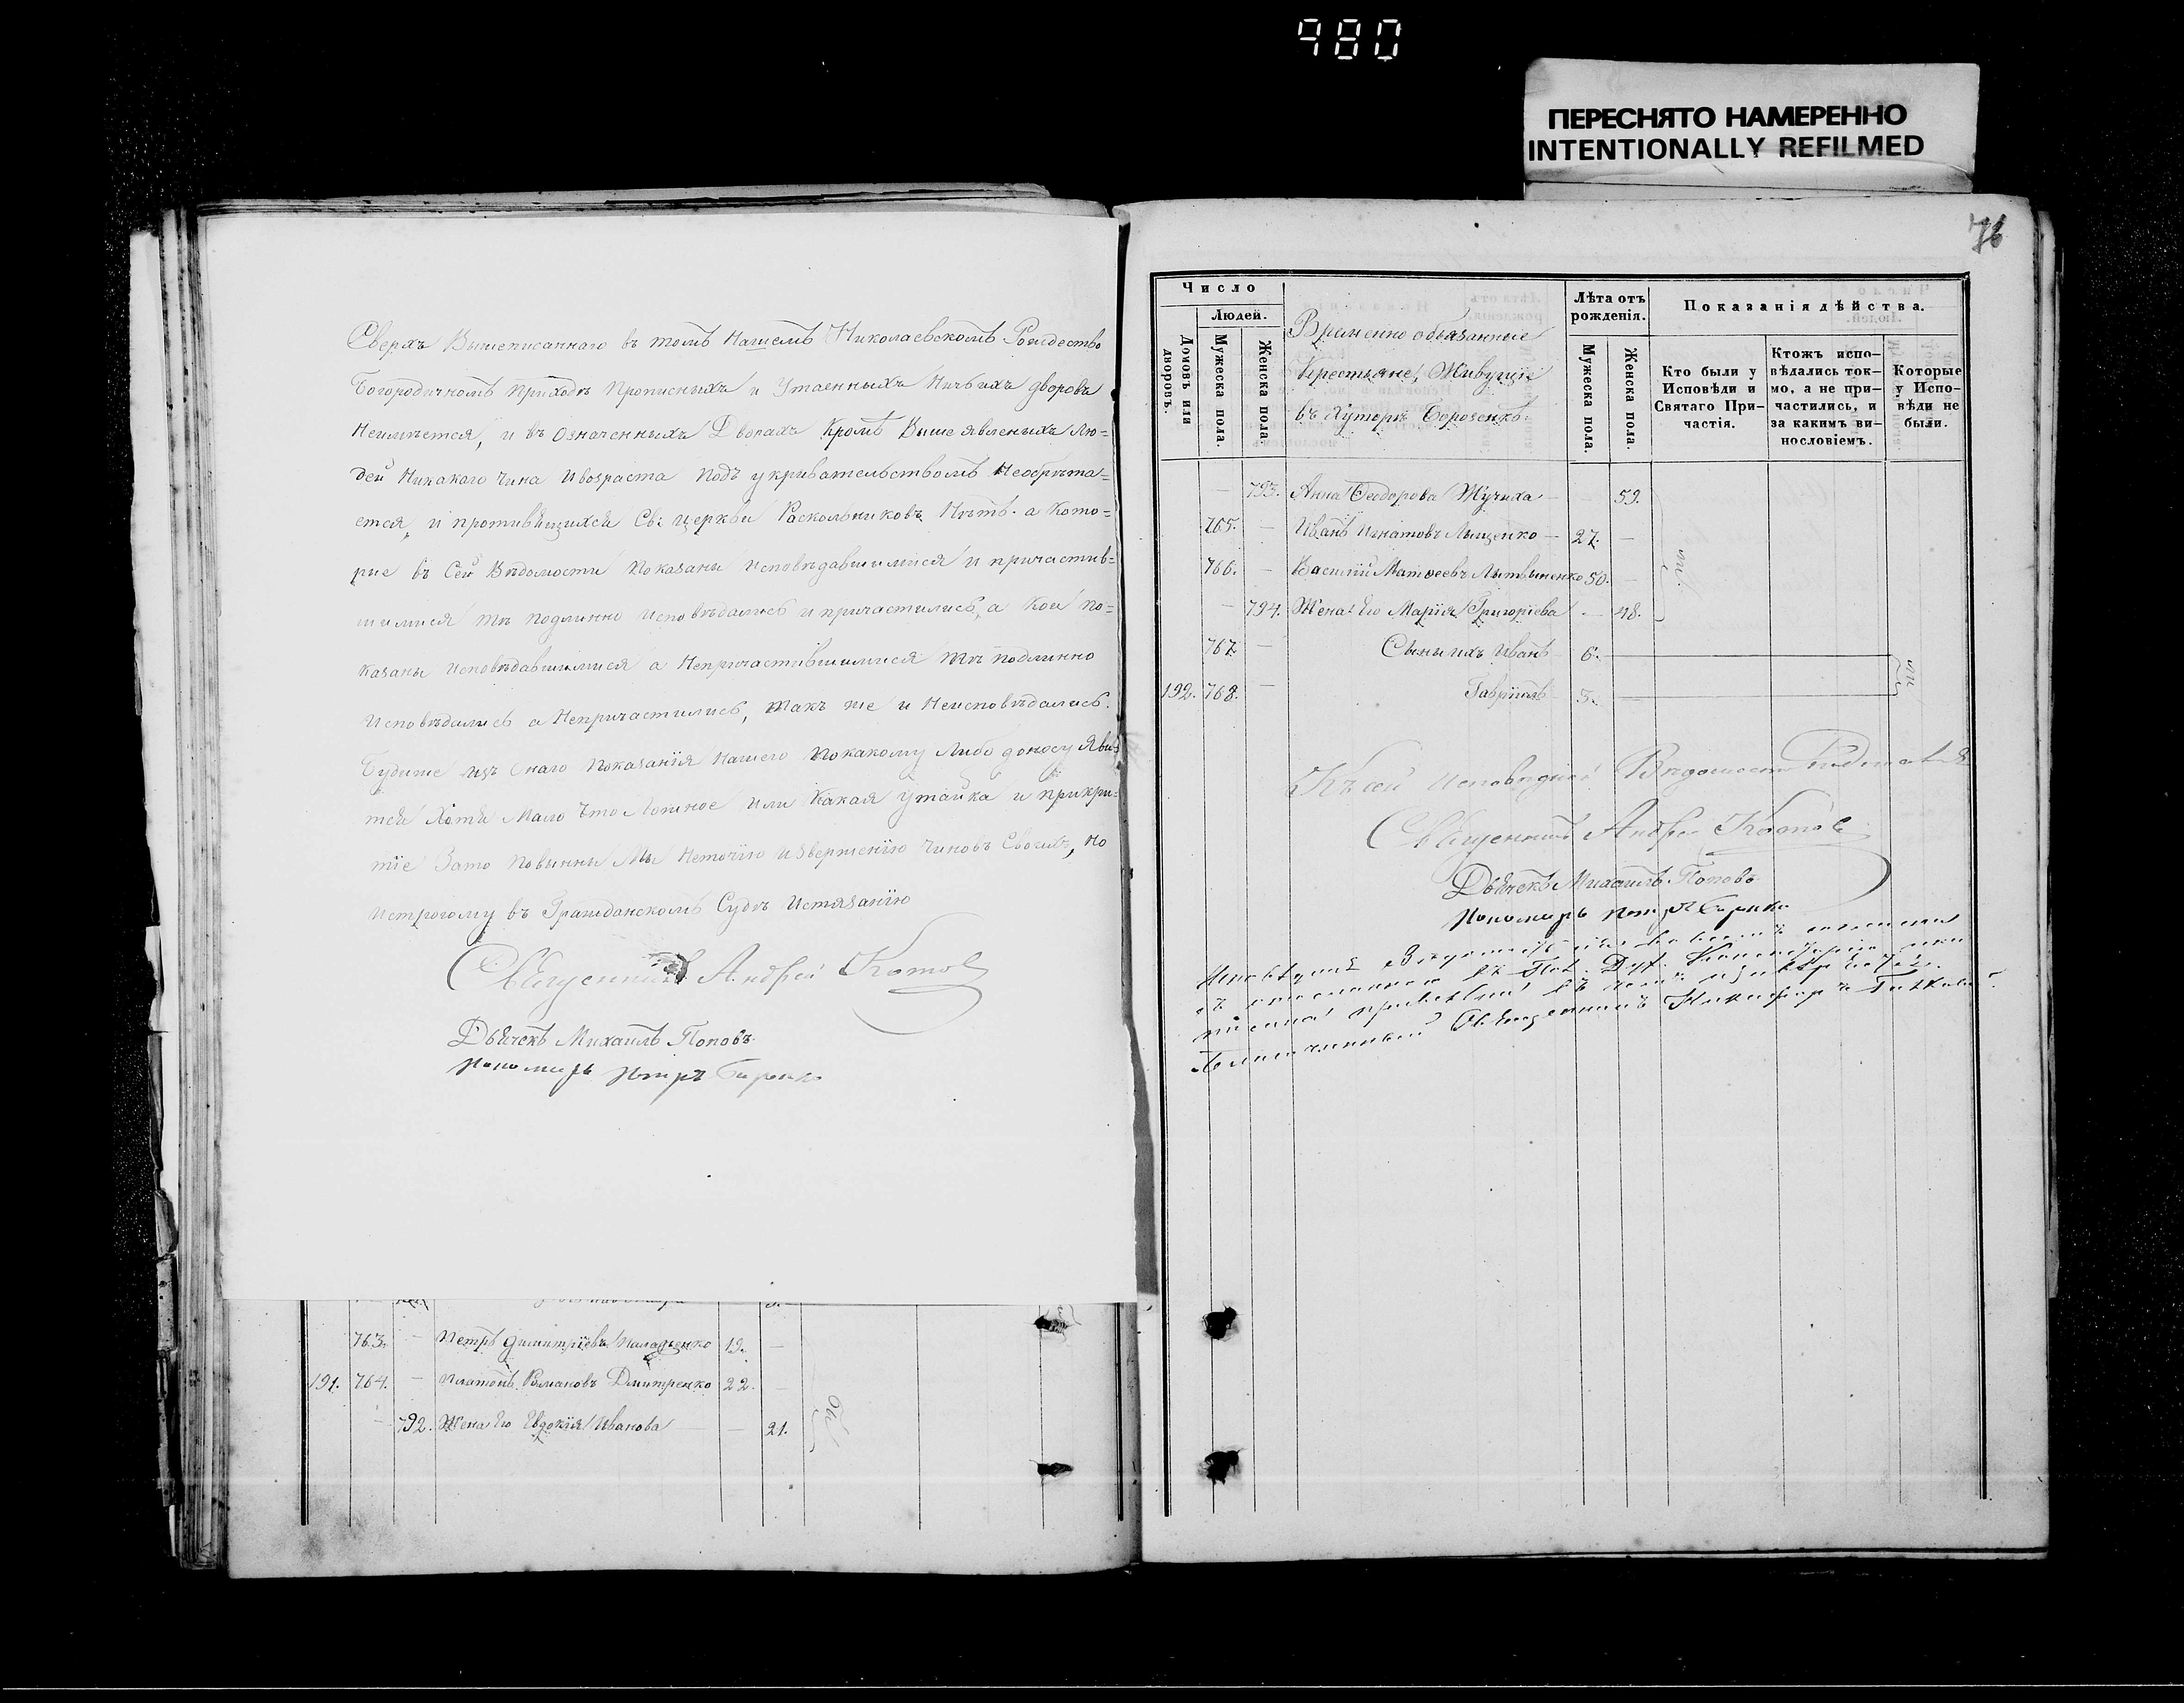 980
ПЕРЕСНЯТО НАМЕРЕННО
INTENTIONALLY REFILMED
Сверхъ Вышеписаннаго въ томъ Нашемъ Николаевскомъ Рождество
Богородичномъ приходѣ Прописныхъ и Утаенныхъ Ничьихъ дворовъ
Неимѣется, и въ Означенныхъ Дворахъ Кромѣ Выше явленыхъ Лю=
дей Никакого Чина и возраста подъ укривательствомъ Необрѣта=
ется, и противящихся Св: Церкви Раскольниковъ Нѣтъ. а Кото=
рые въ Сей Вѣдомости показаны исповѣдавшимися и причастив=
шимися тѣ подлинно исповѣдались и причастились, а Кои по=
казаны исповѣдавшимися а Непричастившимися тѣ подлинно
Исповѣдались а Непричастились, такъ же и Неисповѣдались.
Будеже изъ Онаго показанія Нашего покакому Либо доносу Яви=
тся Хотя Мало Что Ложное или Какая Утайка и прикри=
тіе Зато повынны Мы Неточію изверженію Чиновъ Своихъ, но
и строгому въ Гражданскомъ Судѣ Истязанію
Священникъ Андрей Котовъ
Дьячекъ Михаилъ Поповъ
Пономарь Петръ
763. — Петръ Димитріевъ 19. —
191. 764. — Платонъ Романовъ Дмитренко 22. —
— 792. Жена Его Евдокія Иванова — 21.
76
Число
Людей.
Домовъ или дворовъ.
Мужеска пола.
Женска пола.
Временно обязанные
Крестьяне, Живущіе
въ Хуторѣ Борозенкѣ
Лѣта отъ рожденія.
Мужеска пола.
Женска пола.
Показанія дѣйства.
Кто были у Исповѣди и Святаго При-частія.
Ктожъ испо-вѣдались ток-мо, а не при-частились, и за какимъ ви-нословіемъ.
Которые у Испо-вѣди не были.
— 793. Анна Ѳеодорова Жучиха — 59.
765. — Иванъ Игнатовъ Лященко — 27. —
766. — Василій Матѳеевъ Литвыненко 50. —
— 794. Жена Его Марія Григоріева — 48.
767. — Сыны ихъ Иванъ 6.
192. 768. — Гавріилъ 3.
Къ сей Исповѣдной Вѣдомости
Священникъ Андрей Котовъ
Дьячекъ Михаилъ Поповъ
Пономарь Петръ
Благочинный Священникъ Никифоръ